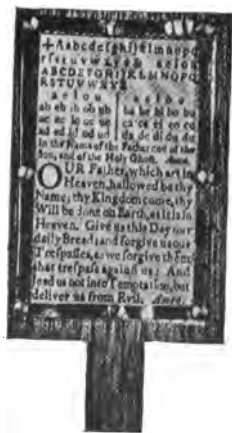 + A a b c d e f g h i j k l m n o p q
r s t u v w x y z & a e i o u
A B C D E F G H I J K L M N O P Q
R S T U V W X Y Z
a e i o u a e i o u
ab eb ib ob ub ba be bi bo bu
ac ec ic oc uc ca ce ci co cu
ad ed id od ud da de di do du
In the Name of the Father and of the
Son, and of the Holy Ghost. Amen.
OUR Father, which art in
Heaven, hallowed be thy
Name; thy Kingdom come, thy
Will be done on Earth, as it is in
Heaven. Give us this Day our
daily Bread; and forgive us our
Trespasses, as we forgive them
that trespass against us: And
lead us not into Temptation, but
deliver us from Evil. Amen.